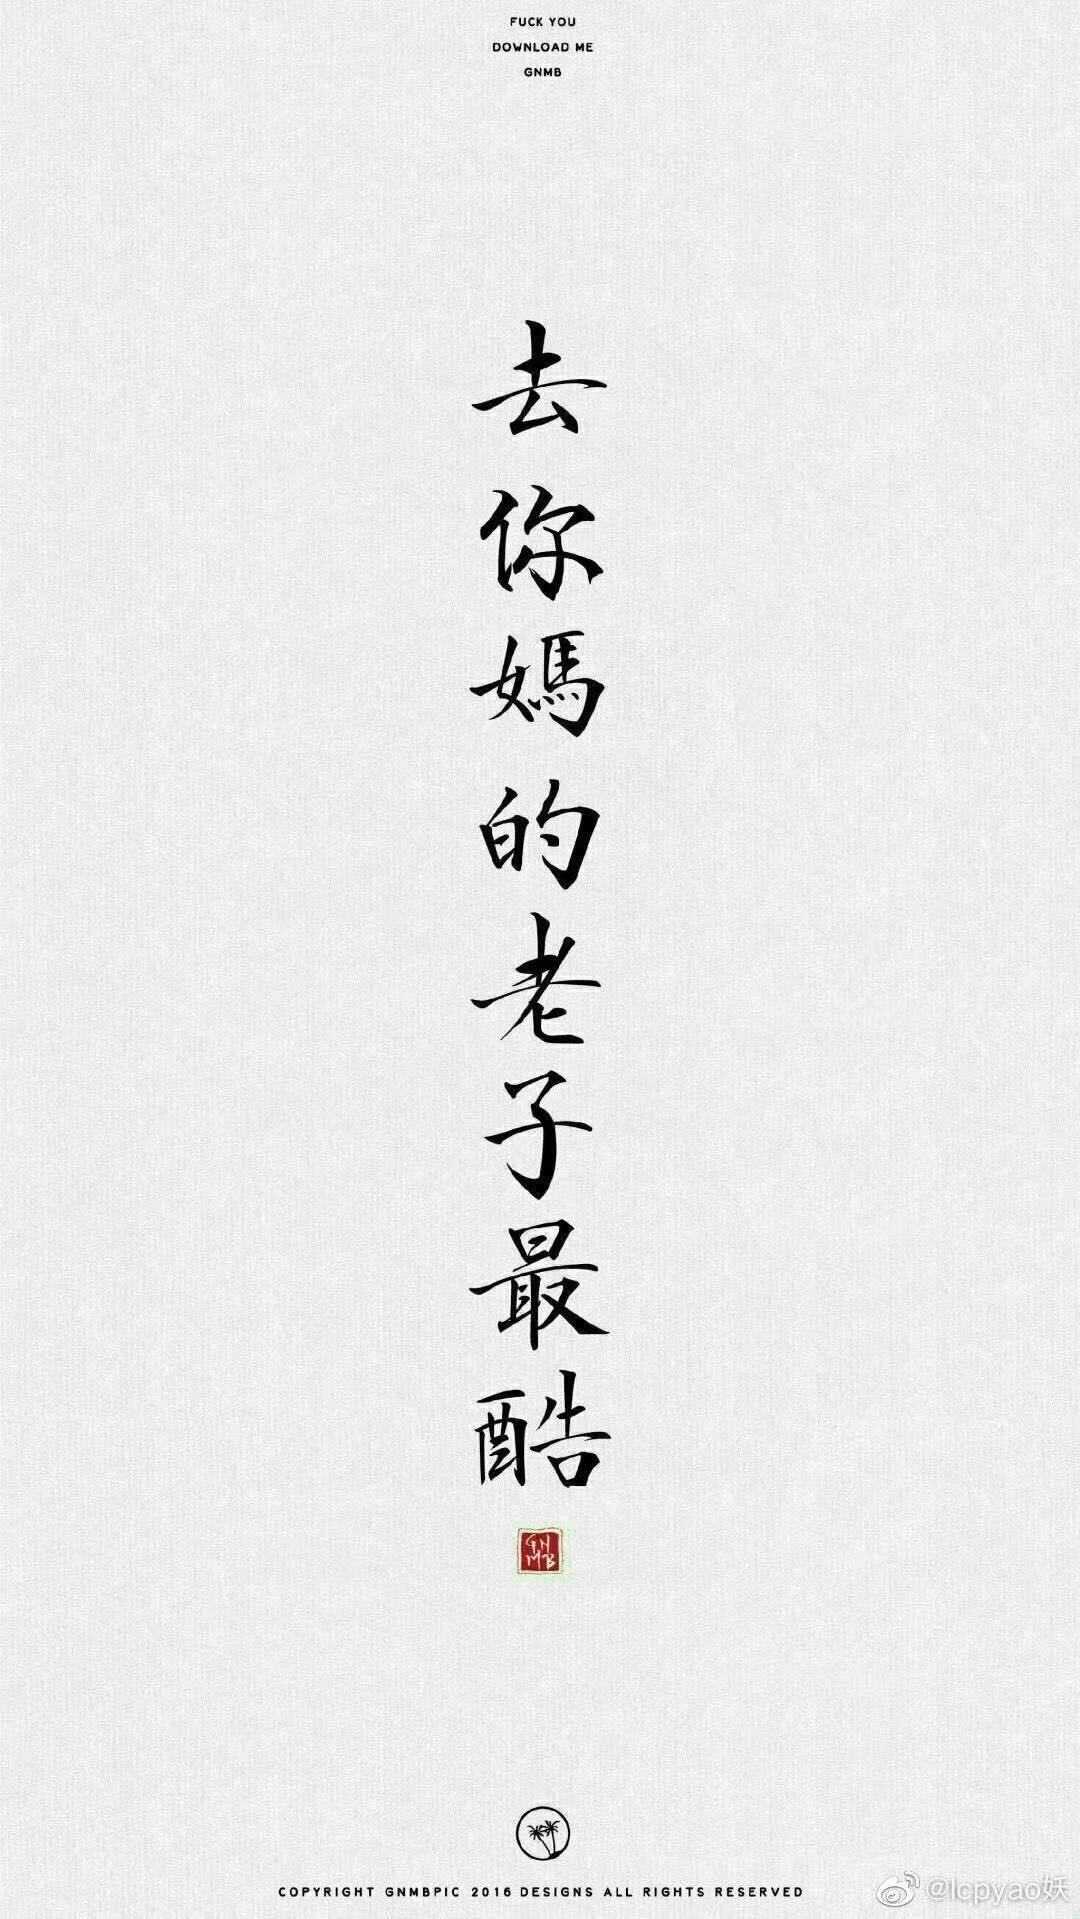 FUCK YOU
DOWNLOAD ME
GNMB
去你媽的老子最酷
GN
MB
COPYRIGHT GNMBPIC 2016 DESIGNS ALL RIGHTS RESERVED
@lcpyao妖